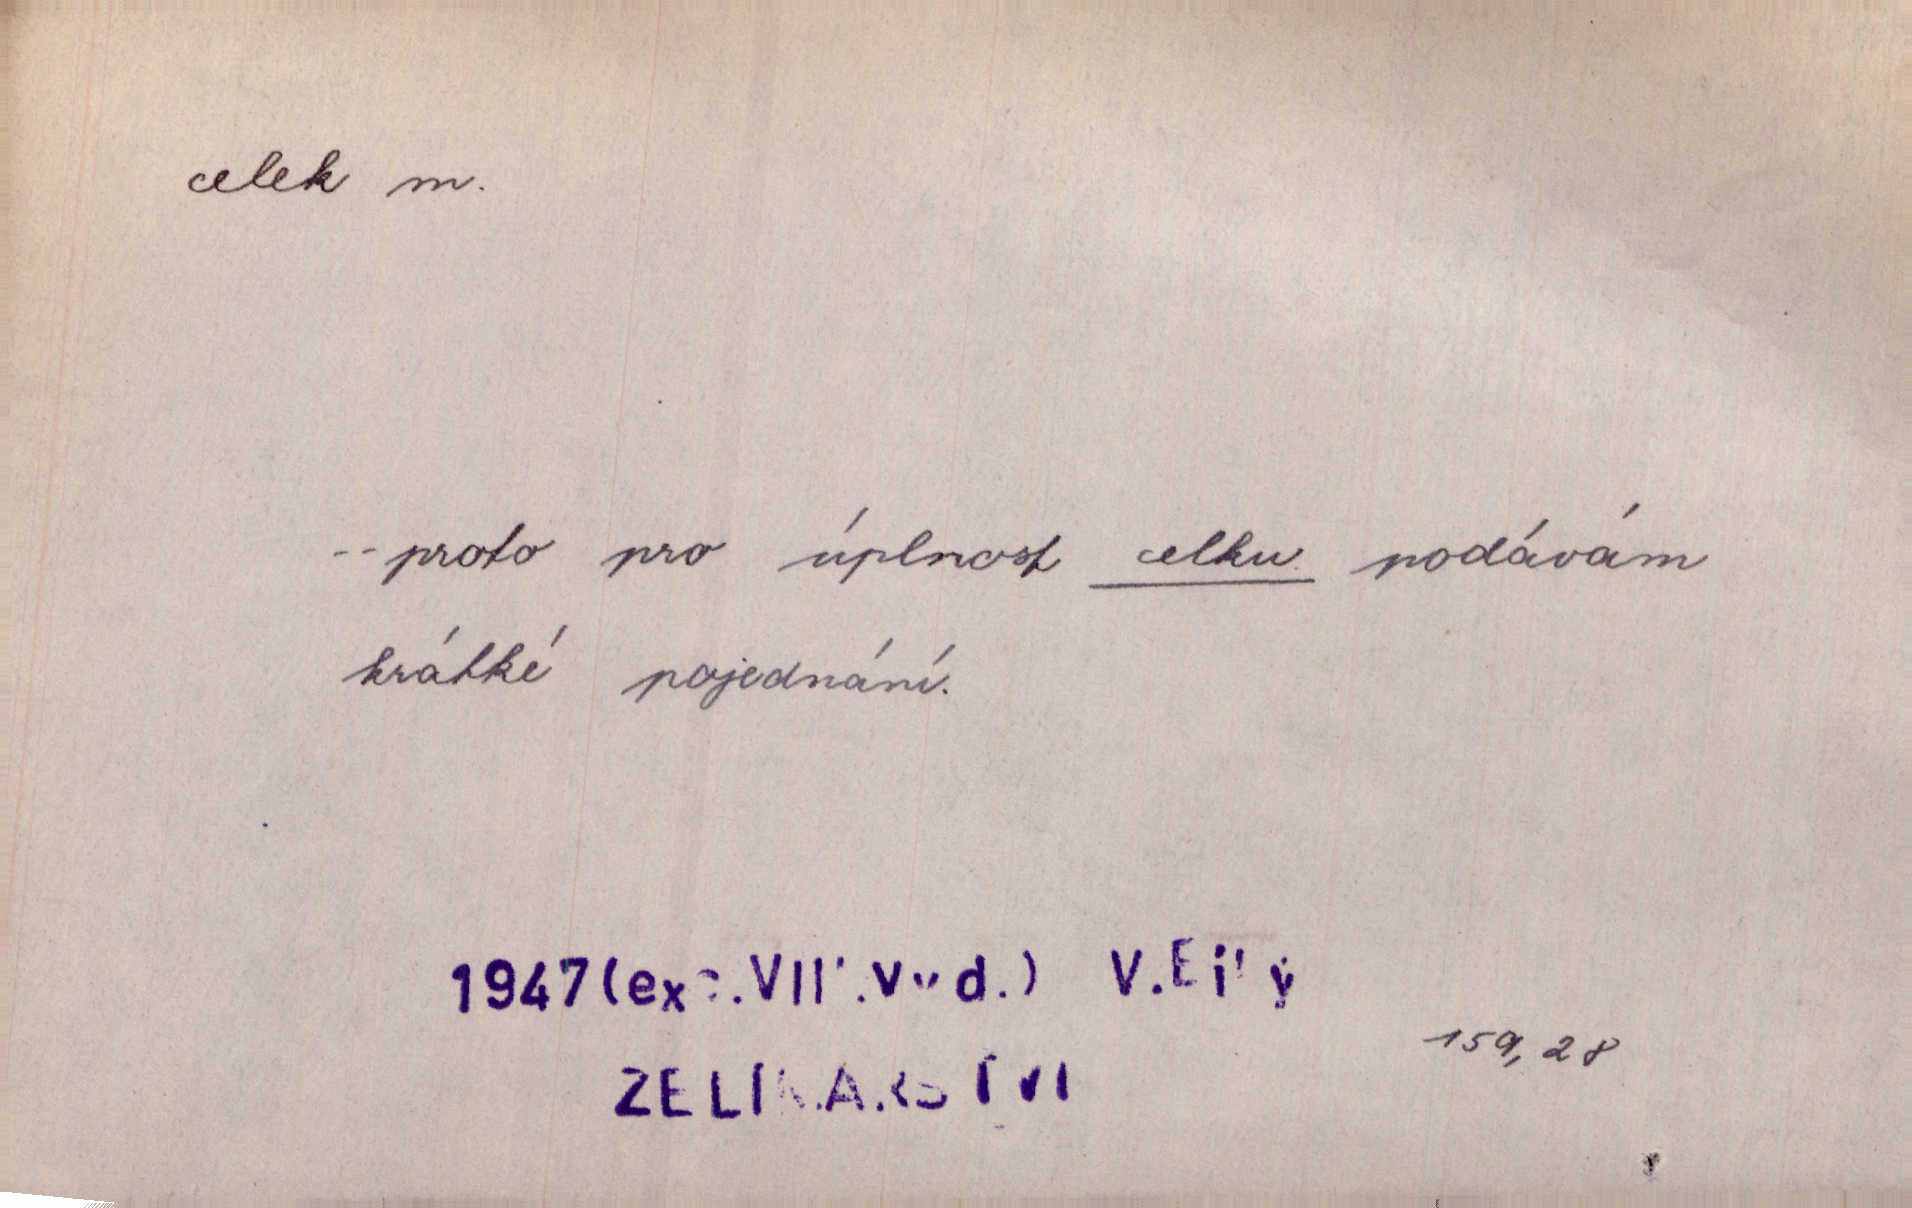 celek m.
--proto pro úplnost celku podávám
krátké pojednání.
1947(exc.VIII.vyd.) V.Bílý
159,28
ZELINÁŘSTVÍ